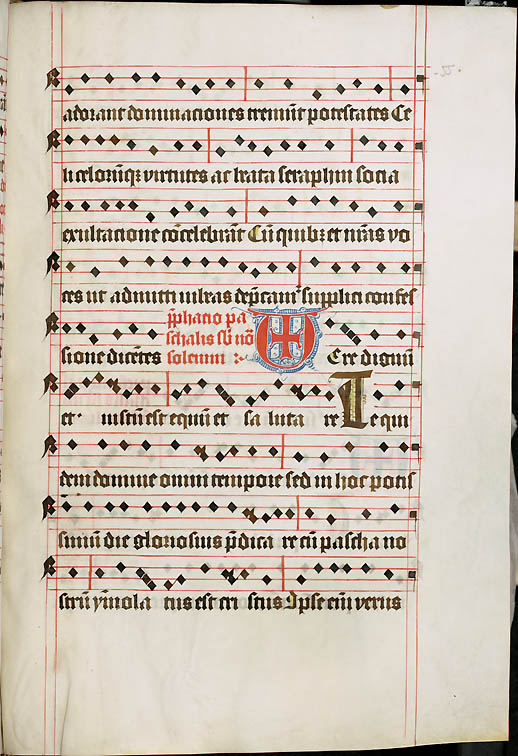 adorant dominaciones tremūt potestates Ce
li celorūqꝫ virtutes ac beata seraphin socia
exultacione cōcelebrāt Cū quibꝫ et nr̄as vo
ces ut admitti iubeas dep̄camᷣ supplici confes
sione dicētes
p̄phatio pa
schalis sū nō
solenni :·
VEre dignū
et iustū est equū et salutare Te qui
dem domine omni tempore sed in hoc potis
simū die gloriosius p̄dicare cū pascha no
strū ymolatus est cristus Ipse em̄ verus